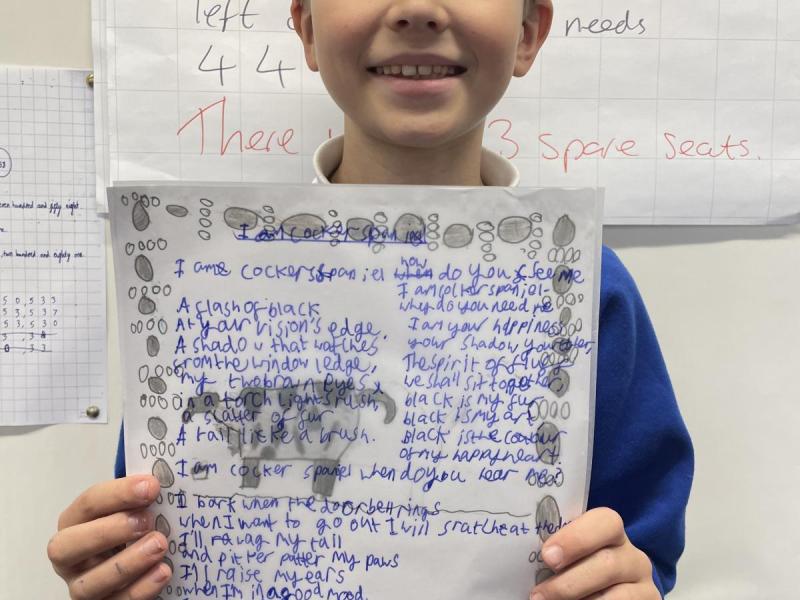 left needs
4 4
There 3 spare seats.
even hundred and fifty eight
two hundred and eighty one
5 0 , 5 3 3
5 3 , 5 3 7
5 3 , 5 3 0
I am cocker spaniel
I ame cockerspaniel how do you see me
A flash of black
At your vision's edge,
A shadow that watches
from the window ledge,
my two brown eyes
in a torch lights rush,
a scatter of fur
A tail like a brush.
I am cocker spaniel
why do you need me
I am your happiness
your shadow your
The spirit of
we shall sit together,
black is my fur
black is my art
Black is the colour
of my happy heart.
I am cocker spaniel when do you hear me?
I bark when the doorbell rings
when I want to go out I will sratch at the
I'll my tail
and pitter patter my paws
I'll raise my ears
when I'm in a good mood.